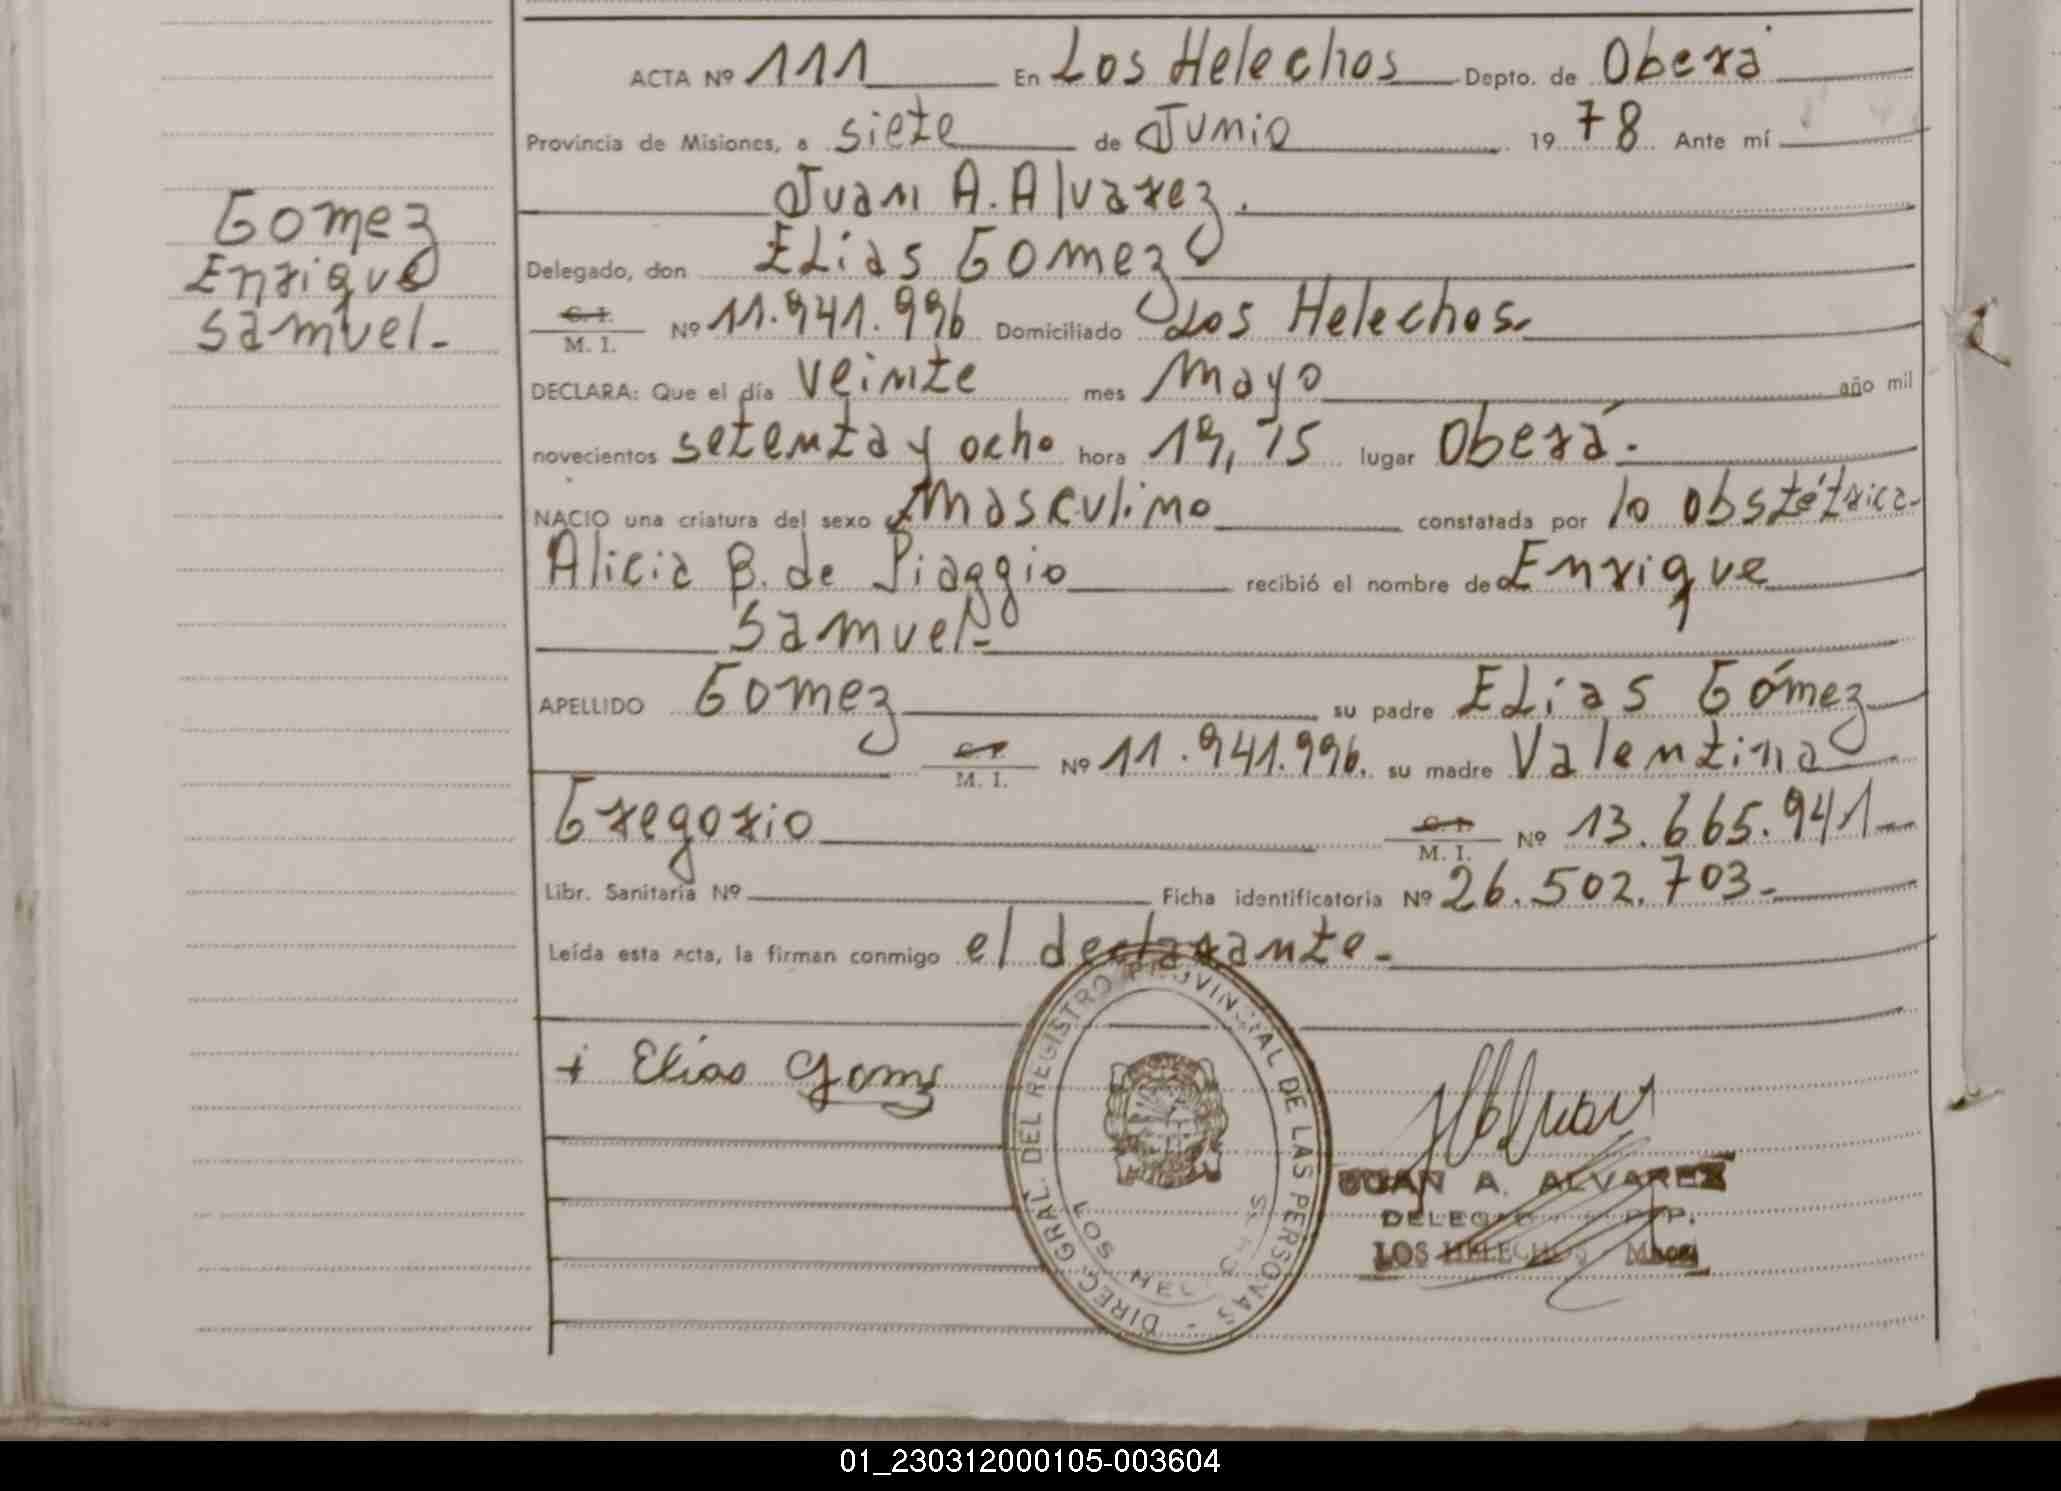 ACTA Nº 111 En Los Helechos Depto. de Oberá
Provincia de Misiones, a siete de Junio 1978 Ante mí
Juan A. Alvarez.
Delegado, don ELias Gomez
C. I. M. I. Nº 11.941.996 Domiciliado Los Helechos.
DECLARA: Que el día veinte mes Mayo año mil
novecientos setenta y ocho hora 19,15 lugar Oberá.
NACIO una criatura del sexo Masculino constatada por la obstétrica
Alicia B. de Piaggio recibió el nombre de Enrique
Samuel-
APELLIDO Gomez su padre ELias Gómez
C. I. M. I. Nº 11.941.996. su madre Valentina
Gregorio C. I. M. I. Nº 13.665.941
Libr. Sanitaria Nº Ficha identificatoria Nº 26.502.703-
Leída esta acta, la firman conmigo el declarante-
Gomez
Enrique
Samuel-
+ Elias Gomez
DIREC. GRAL. DEL REGISTRO PROVINCIAL DE LAS PERSONAS -
LOS HELECHOS
JUAN A. ALVAREZ
LOS HELECHOS
01_230312000105-003604